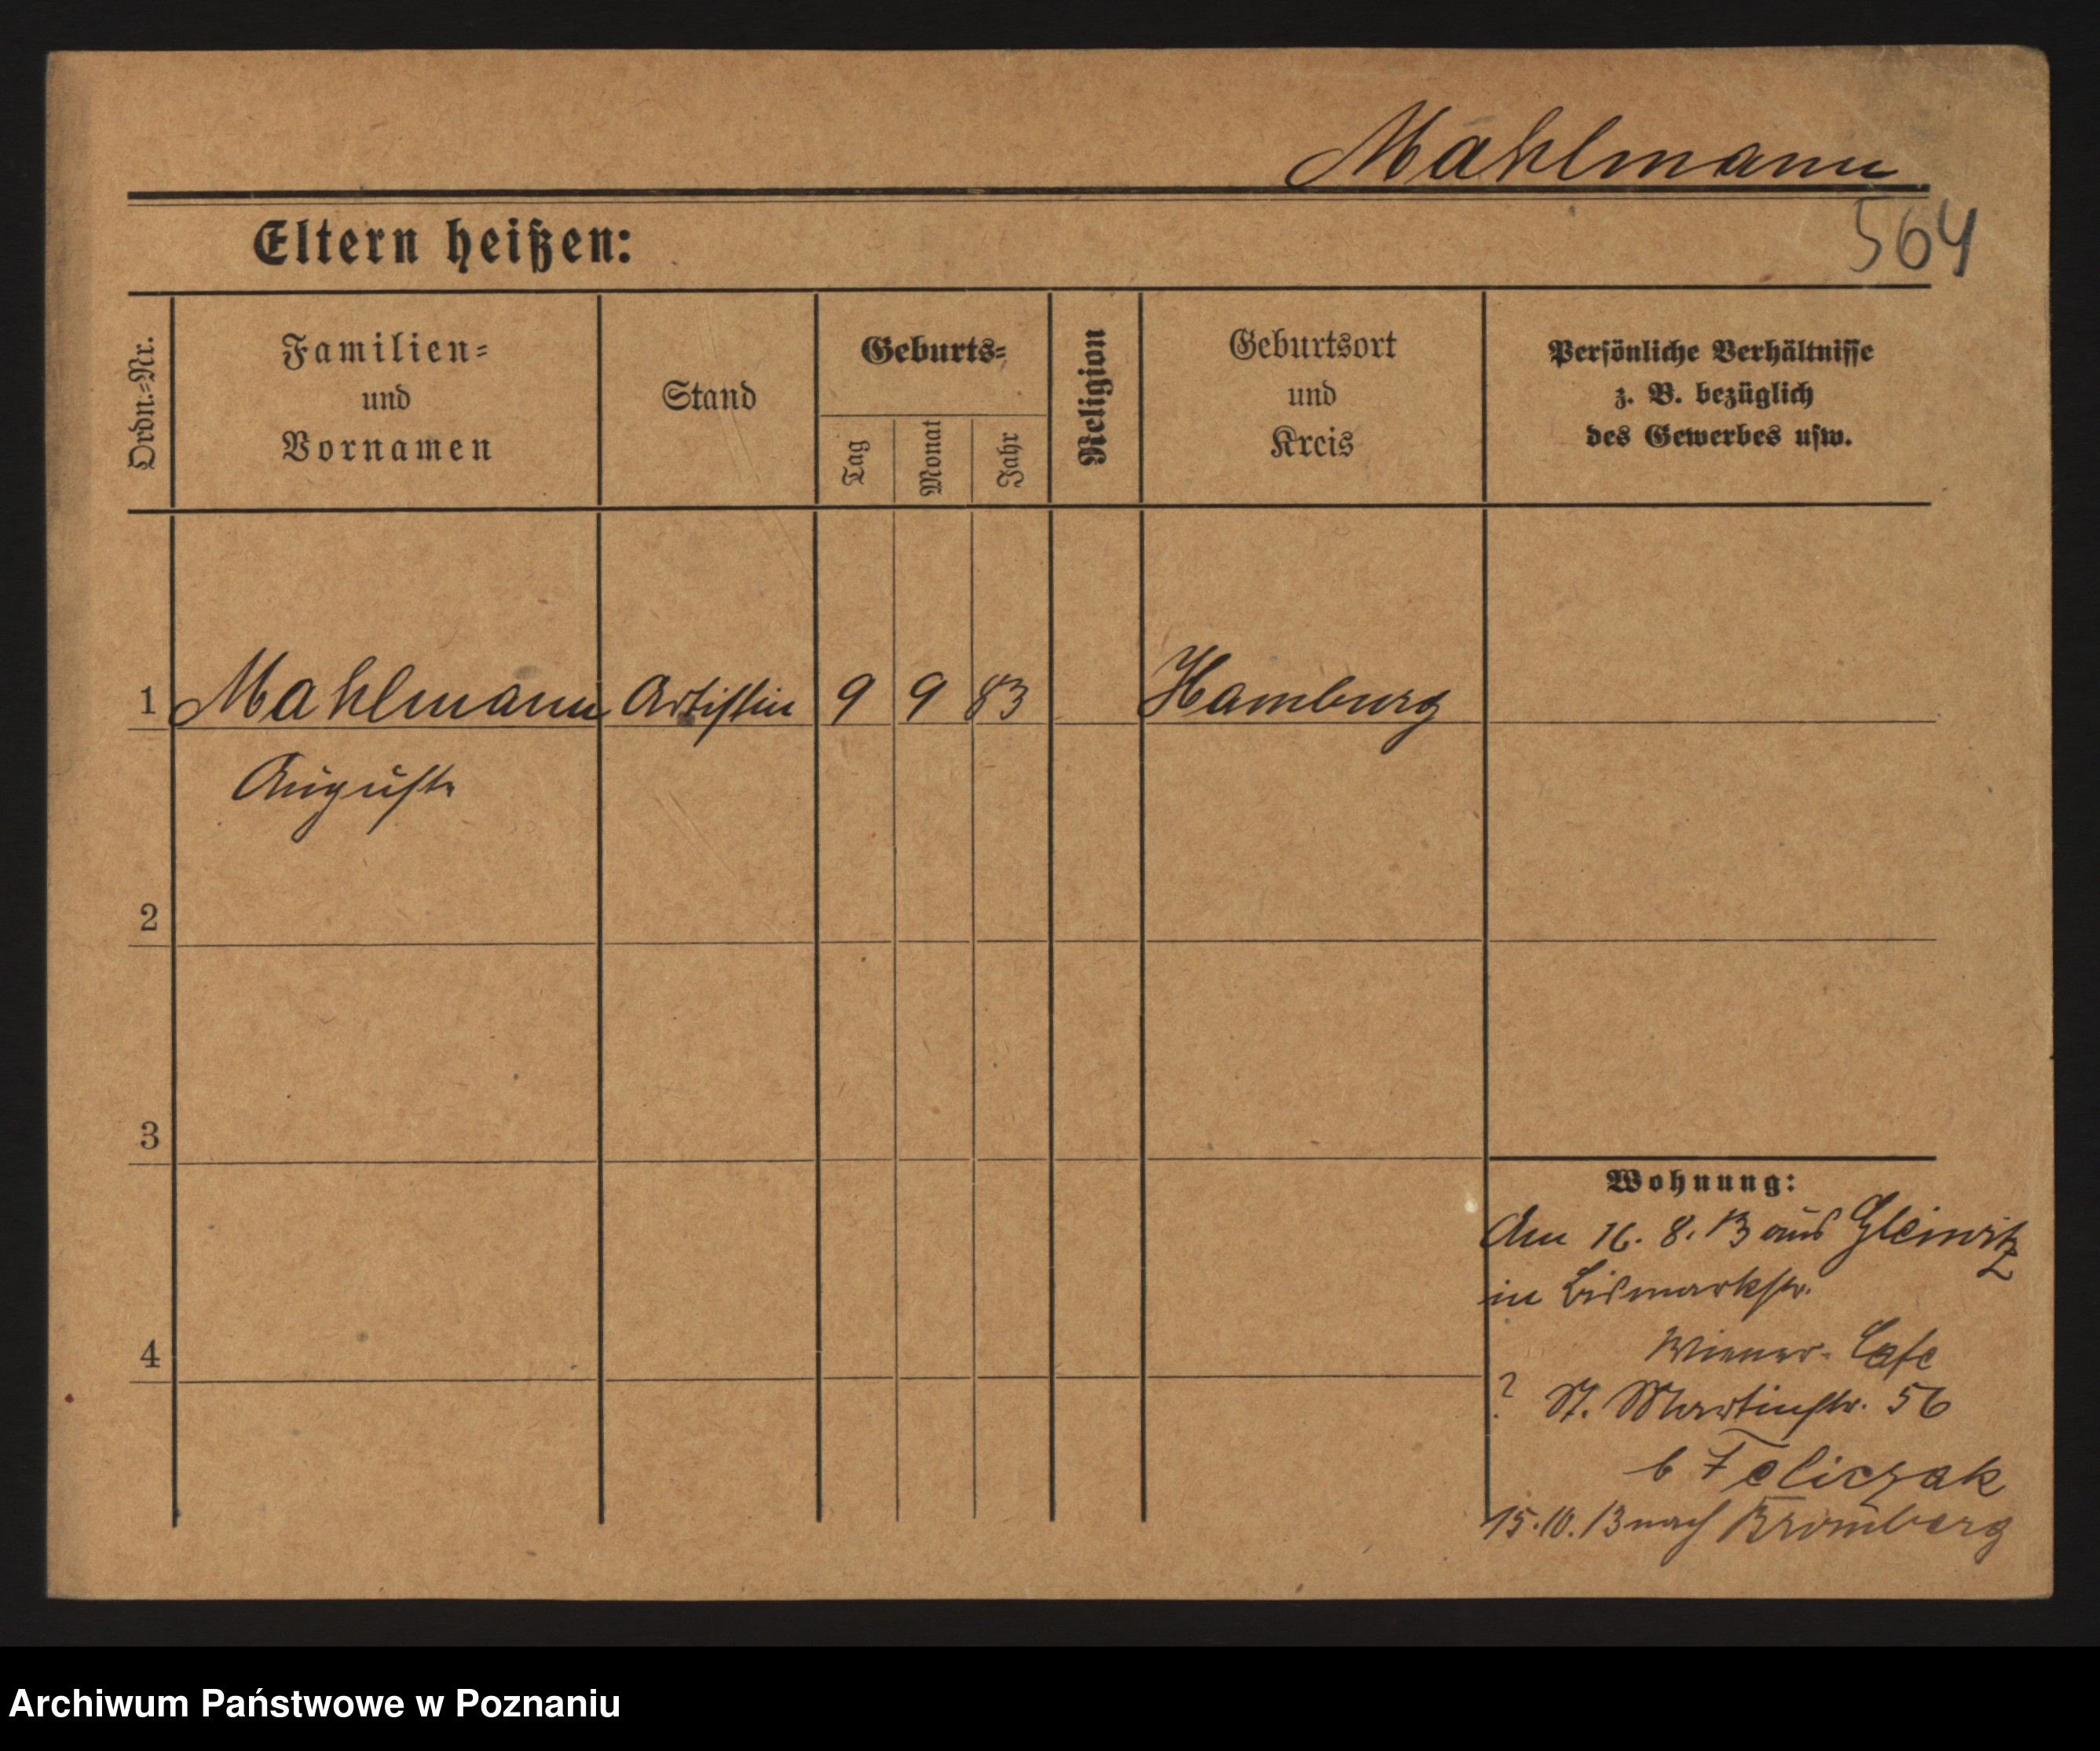 Mahlmann
564
Eltern heißen:
Ordn.-Nr.
Familien-
und
Vornamen
Stand
Geburts-
Tag
Monat
Jahr
Religion
Geburtsort
und
Kreis
Persönliche Verhältnisse
z. B. bezüglich
des Gewerbes usw.
1 Mahlmann Artistin 9 9 83 Hamburg
Auguste
2
3
4
Wohnung:
Am 16. 8. 13 aus Gleiwitz
in Bismarkstr.
Wiener-Cafe
? St. Martinstr. 56
b Feliczak
15.10.13 nach Bromberg
Archiwum Państwowe w Poznaniu